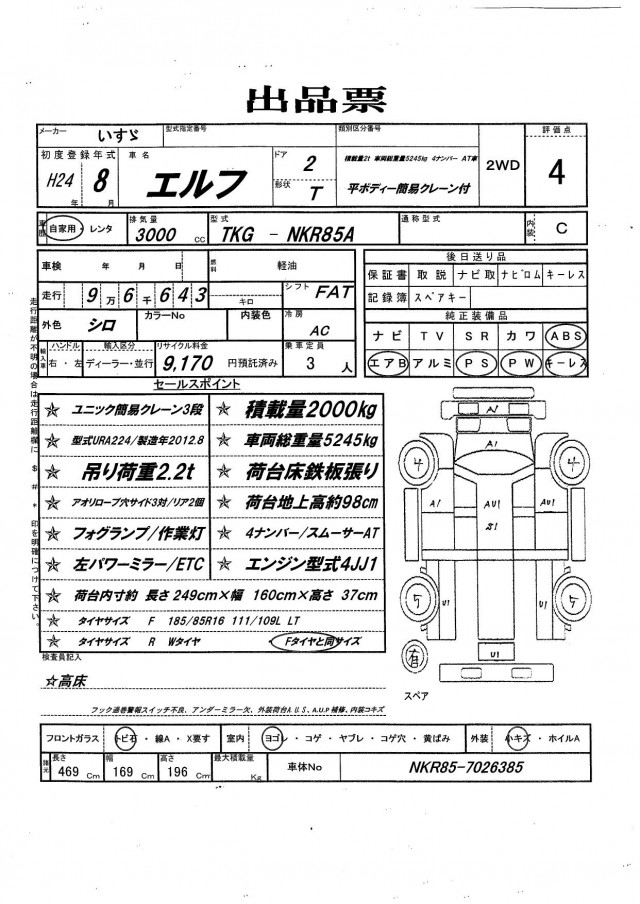 出品票
メーカー いすゞ 型式指定番号 類別区分番号 評価点
初度登録年式 車名 ドア 2 積載量2t 車両総重量5245kg 4ナンバー AT車 2WD 4
H24年 8月 エルフ 形状 T 平ボディー簡易クレーン付
車歴 自家用・レンタ 排気量 3000 CC 型式 TKG - NKR85A 通称型式 内装 C
車検 年 月 日 燃料 軽油 後日送り品
保証書 取説 ナビ取 ナビロム キーレス
走行 9万6千643 キロ シフト FAT 記録簿 スペアキー
外色 シロ カラーNo 内装色 冷房 AC 純正装備品
ナビ TV SR カワ ABS
輸入車 ハンドル 右・左 輸入区分 ディーラー・並行 リサイクル料金 9,170 円預託済み 乗車定員 3人 エアB アルミ PS PW キーレス
セールスポイント
☆ ユニック簡易クレーン3段 ☆ 積載量2000kg
☆ 型式URA224/製造年2012.8 ☆ 車両総重量5245kg
☆ 吊り荷重2.2t ☆ 荷台床鉄板張り
☆ アオリロープ穴サイド3対/リア2個 ☆ 荷台地上高約98cm
☆ フォグランプ/作業灯 ☆ 4ナンバー/スムーサーAT
☆ 左パワーミラー/ETC ☆ エンジン型式4JJ1
☆ 荷台内寸約 長さ249cm×幅 160cm×高さ 37cm
☆ タイヤサイズ F 185/85R16 111/109L LT
☆ タイヤサイズ R Wタイヤ Fタイヤと同サイズ
走行距離が不明の場合は走行距離欄に $ # * 印を明確につけて下さい。
A1
4 A1 4
A1 AU1 AU1
S1
5 5
U1 U1
有 U1
スペア
検査員記入
☆高床
フック過巻警報スイッチ不良、アンダーミラー欠、外装荷台A.U.S、A.U.P補修、内装コキズ
フロントガラス トビ石・線A・X要す 室内 ヨゴレ・コゲ・ヤブレ・コゲ穴・黄ばみ 外装 小キズ・ホイルA
諸元 長さ 469 Cm 幅 169 Cm 高さ 196 Cm 最大積載量 Kg 車体No NKR85-7026385